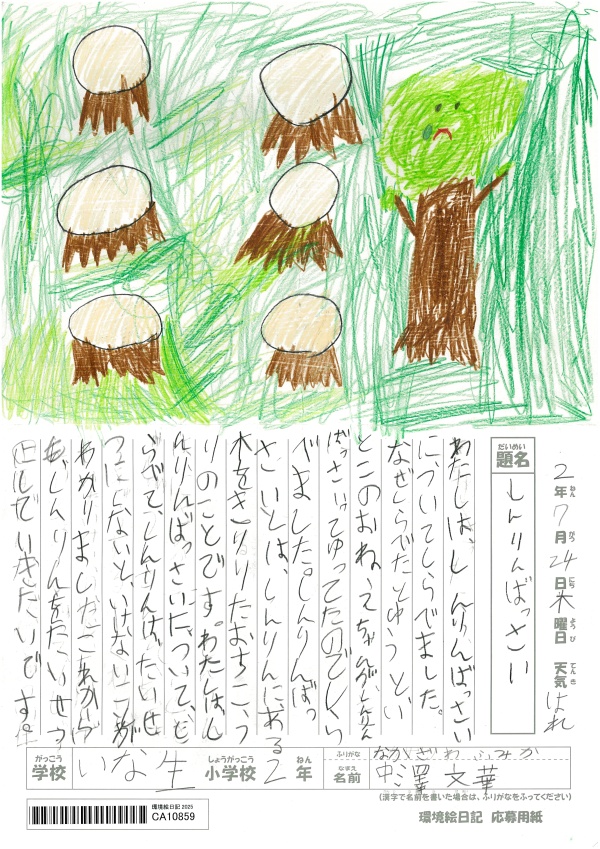 2年7月24日木曜日 天気はれ
ねん がつ にち ようび てんき
だいめい
題名
しんりんばっさい
わたしは、しんりんばっさい
についてしらべました。
なぜしらべたとゆうとい
とこのおねえちゃんがしんりん
ばっさいってゆってたのでしら
べました。しんりんばっ
さいとは、しんりんにある
木をきりりたおすこうつ
りのことです。わたしはし
んりんばっさいたついて、し
らべて、しんりんはたいせ
つにしないと、いけないことが
わかりました。これから
も、しんりんをたいせつ
にしていきたいです。
がっこう しょうがっこう ねん
学校 いな生 小学校 2年
ふりがな なかざわ ふみか
なまえ
名前 中澤 文華
(漢字で名前を書いた場合は、ふりがなをふってください)
環境絵日記 2025
CA10859
環境絵日記 応募用紙